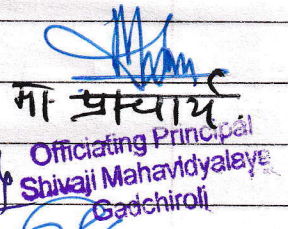 मा. प्राचार्य
Officiating Principal
Shivaji Mahavidyalaya
Gadchiroli